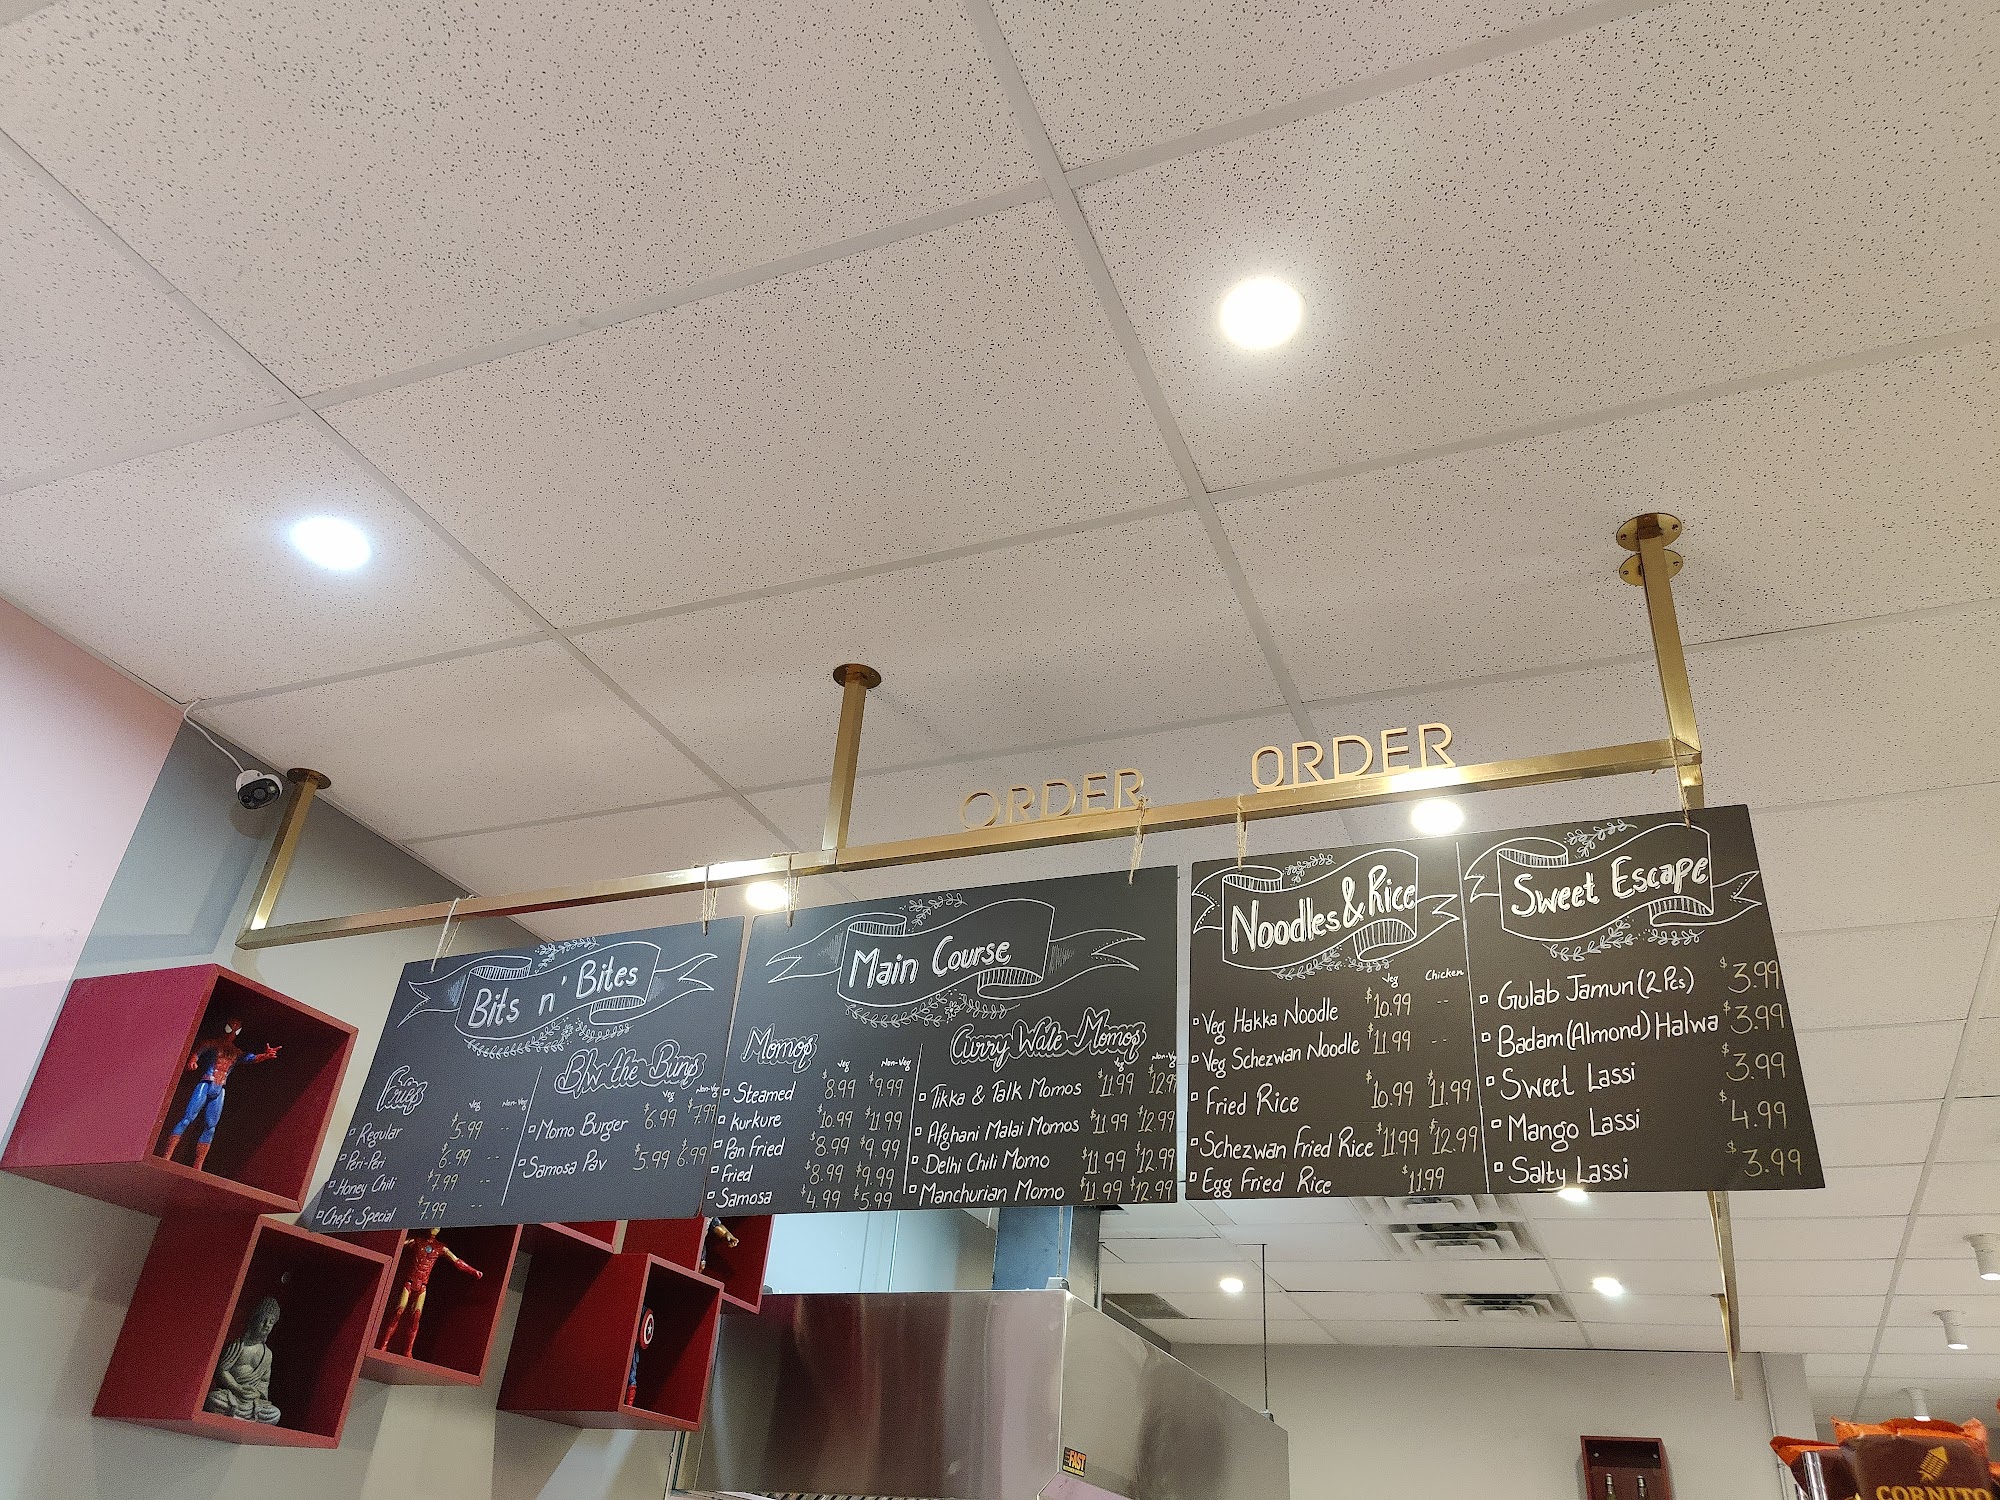 ORDER
ORDER
Bits n' Bites
Fries
Veg Non-Veg
Regular $5.99 --
Peri-Peri $6.99 --
Honey Chili $7.99 --
Chef's Special $7.99 --
B/w the Buns
Veg Non-Veg
Momo Burger $6.99 $7.99
Samosa Pav $5.99 6.99
Main Course
Momos
Veg Non-Veg
Steamed $8.99 $9.99
Kurkure $10.99 $11.99
Pan Fried $8.99 $9.99
Fried $8.99 $9.99
Samosa $4.99 $5.99
Curry Wale Momos
Veg Non-Veg
Tikka & Talk Momos $11.99 $12.99
Afghani Malai Momos $11.99 $12.99
Delhi Chili Momo $11.99 $12.99
Manchurian Momo $11.99 $12.99
Noodles & Rice
Veg Chicken
Veg Hakka Noodle $10.99 --
Veg Schezwan Noodle $11.99 --
Fried Rice $10.99 $11.99
Schezwan Fried Rice $11.99 $12.99
Egg Fried Rice $11.99
Sweet Escape
Gulab Jamun (2 Pcs) $3.99
Badam (Almond) Halwa $3.99
Sweet Lassi $3.99
Mango Lassi $4.99
Salty Lassi $3.99
FAST
CORNITO